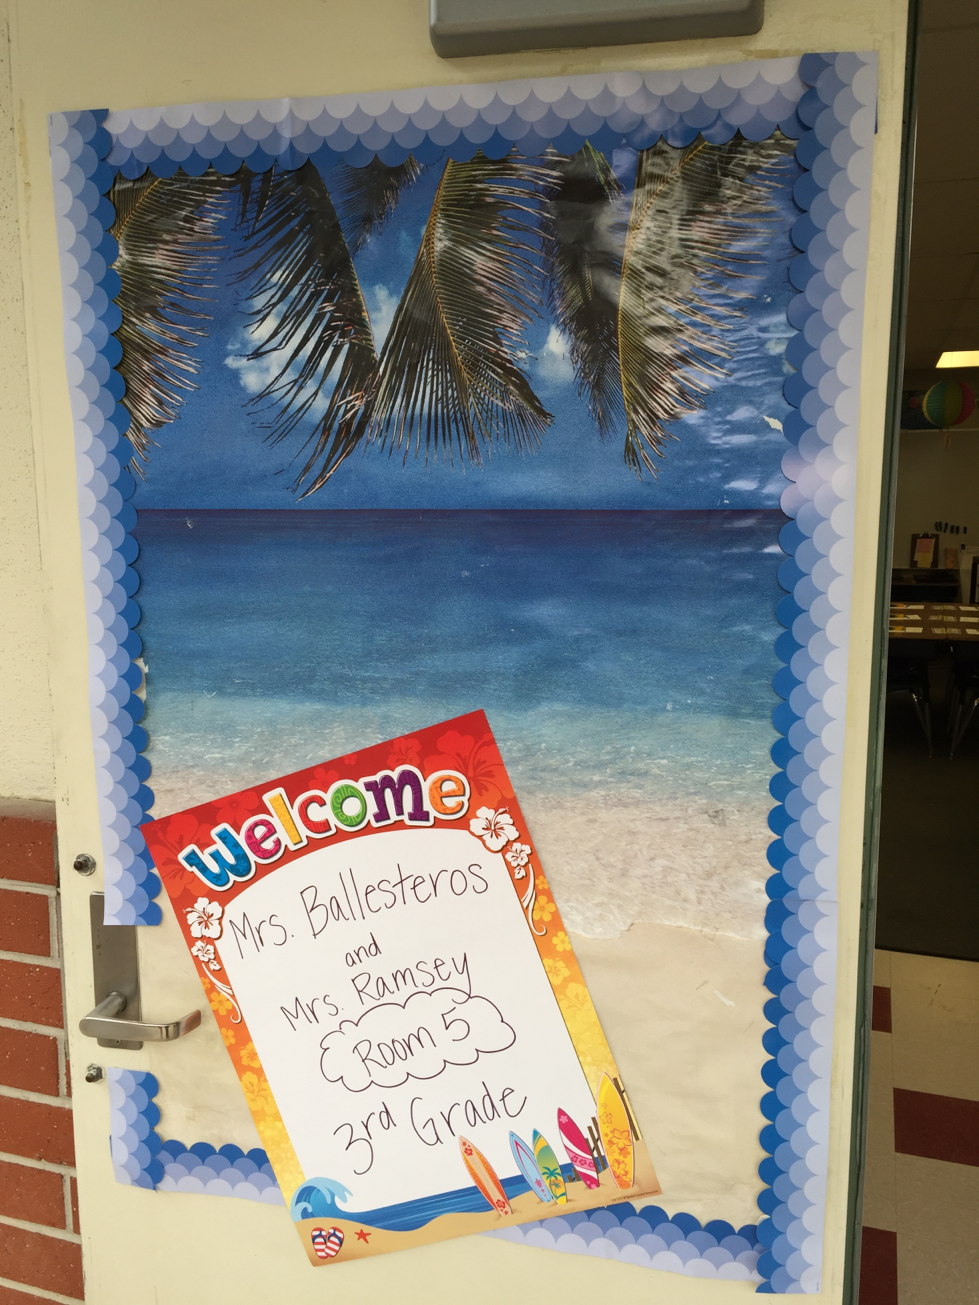 welcome
Mrs. Ballesteros
and
Mrs. Ramsey
Room 5
3rd Grade